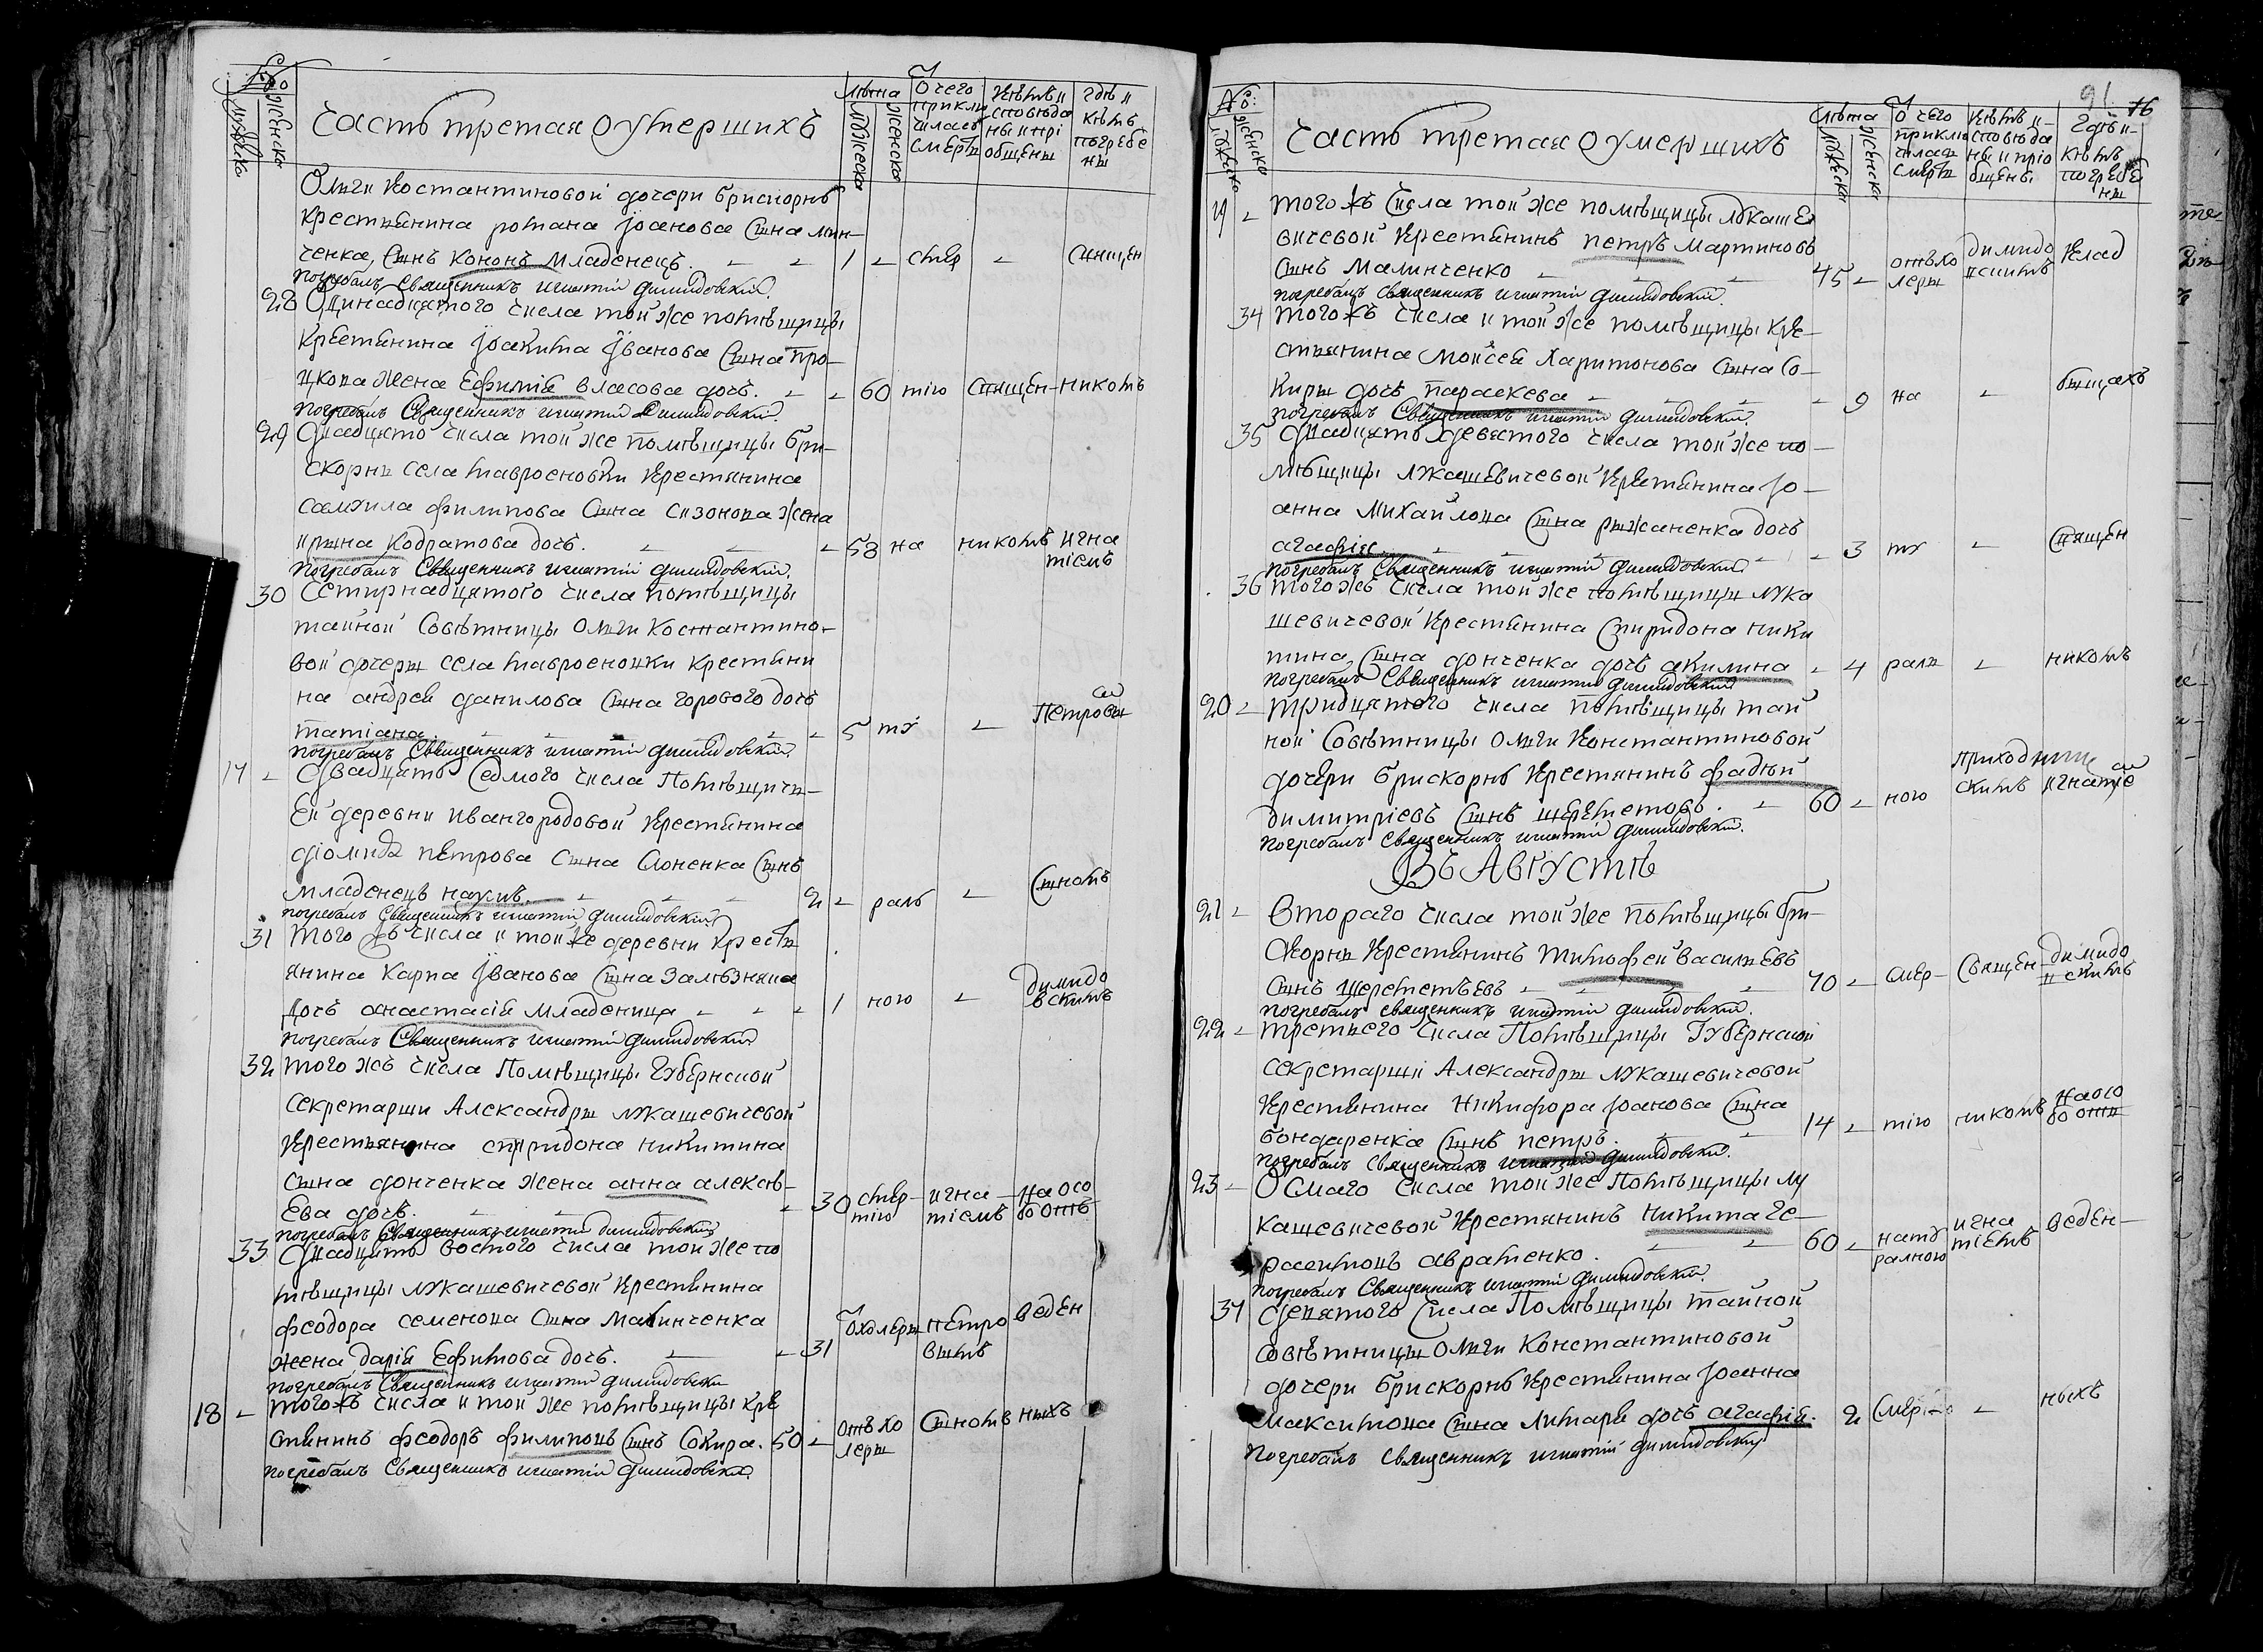 Часть третая о умершихъ
№
мужеска
женска
лѣта
мужеска
женска
От чего приклю
чилась
смерть
Кѣмъ и
сповѣда
ны и прі
общены
Гдѣ и
кѣмъ
погребе
ны
Ольги Костантиновой дочери брискорнѣ
крестьянина романа Іоанова сына мин
ченка, сынъ кононъ младенецъ. 1 смер священ
погребалъ священникъ игнатій димидовскій.
28 Одинадцятого числа той же помѣщицы
крестьянина Іоакима Іванова сына про
цкова жена Ефимія власова дочь. 60 тію священ никомъ
погребалъ священникъ игнатій димидовскій.
29 Двадцято числа той же помѣщицы бри
скорны села мавроеновки крестянина
самуила филипова сына сизонова жена
ирина кодратова дочь. 58 на никомъ игна
тіемъ
погребалъ священникъ игнатій димидовскій.
30 Четырнадцятого числа помѣщицы
тайной совѣтницы Ольги Костантино
вой дочеры села мавроеновки крестяни
на андрея данилова сына горового дочь
татіана. 5 ту Петровы
погребалъ священникъ игнатій димидовскій.
17 Двадцято седмого числа помѣщичи
ей деревни Ивангородовой крестянина
діомида петрова сына Слоненка сынъ
младенецъ наумъ. 2 рал сыномъ
погребалъ священникъ игнатій димидовскій
31 того жъ числа и той же деревни крест
янина карпа Іванова сына зализняка
дочь анастасія младеница 1 ною димидо
вскимъ
погребалъ священникъ игнатій димидовскій
32 того жъ числа помѣщицы губернской
секретарши Александры лукашевичевой
крестьянина спиридона никитина
сына донченка жена анна алексѣ
ева дочь. 30 смер
тію игна
тіемъ на осо
бо отв
погребалъ священникъ игнатій димидовскій
33 Двадцято восмого числа той же по
мѣщицы лукашевичевой крестянина
феодора семенова сына малинченка
жена дарія Ефимова дочь. 31 От холеры петро
вымъ веден
погребалъ священникъ игнатій димидовскій
18 того жъ числа и той же помѣщицы кре
стянинъ феодоръ филиповъ сынъ Сокира. 50 отъ хо
леры сыномъ ныхъ
погребалъ священникъ игнатій димидовскій.
91 76
Часть третая о умершихъ
№
мужеска
женска
лѣта
мужеска
женска
От чего
приклю
чилась
смерть
Кѣмъ и
сповѣда
ны и пріо
бщены
Гдѣ и
кѣмъ
погребе
ны
19 того жъ числа той же помѣщицы лукаше
вичевой крестянинъ петръ мартиновъ
сынъ малинченко 45 отъ хо
леры димидо
вскимъ клад
погребалъ священникъ игнатій димидовскій.
34 того жъ числа и той же помѣщицы кре
стьянина моисея харитонова сына со
киры дочь параскева 9 на бищахъ
погребалъ священникъ игнатій димидовскій.
35 Двадцято девятого числа той же по
мѣщицы лукашевичевой крестянина Іо
анна михайлова сына рыжаненка дочь
агафія 3 ту священ
погребалъ священникъ игнатій димидовскій
36 того жъ числа той же помѣщицы лука
шевичевой крестянина спиридона ники
тина сына донченка дочь акилина 4 рал никомъ
погребалъ священникъ игнатій димидовскій
20 тридцятого числа помѣщицы тай
ной совѣтницы Ольги Константиновой
дочери брискорнѣ крестянинъ фадѣй
димитріевъ сынъ щереметовъ. 60 ною приходни
скимъ игнатіе
погребалъ священникъ игнатій димидовскій.
Въ Августѣ
21 втораго числа той же помѣщицы бри
скорны крестянинъ тимофей васильевъ
сынъ щереметьевъ 70 смер священ димидо
вскимъ
погребалъ священникъ игнатій димидовскій.
22 третьего числа помѣщицы губернской
секретарши Александры лукашевичевой
крестянина никифора Іоанова сына
бондаренка сынъ петръ. 14 тію никомъ на осо
бо отв
погребалъ священникъ игнатій димидовскій.
23 Осмаго числа той же помѣщицы лу
кашевичевой крестянинъ никита ге
расимовъ авраменко. 60 нату
ралною игна
тіемъ веден
погребалъ священникъ игнатій димидовскій.
37 девятого числа помѣщицы тайной
совѣтницы Ольги Константиновой
дочери брискорнѣ крестянина Іоанна
максимова сына литара дочь агафія. 2 смертію ныхъ
погребалъ священникъ игнатій димидовскій